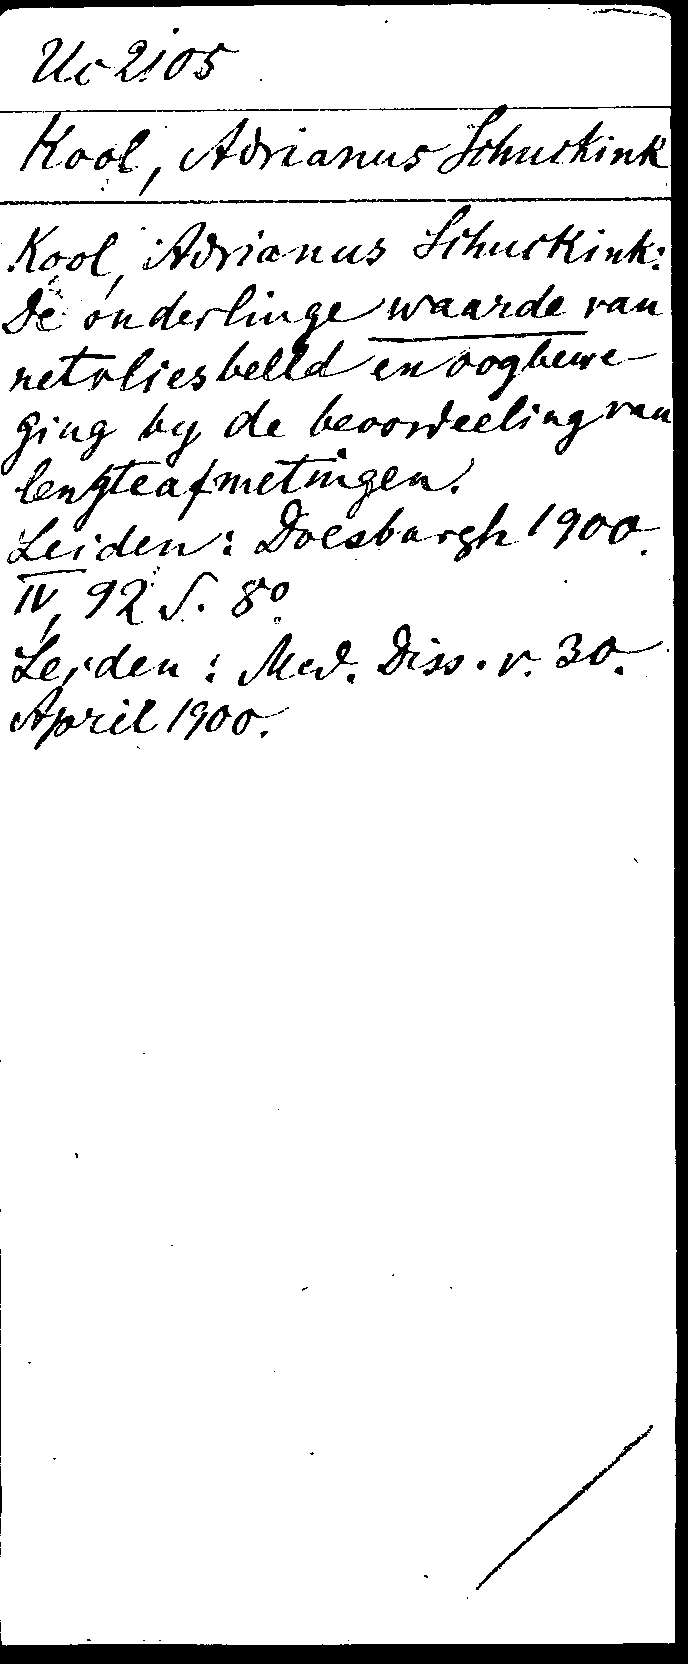 Uc 2105
Kool, Adrianus Schuckink
Kool, Adrianus Schuckink:
De onderlinge waarde van
netvliesbelld en oogbewe-
ging by de beoordeeling van
lengteafmetingen.
Leiden: Doesburgh 1900.
IV, 92 S. 8°
Leiden: Med. Diss. v. 30.
April 1900.